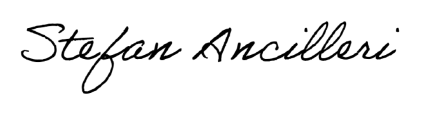 Stefan Ancilleri